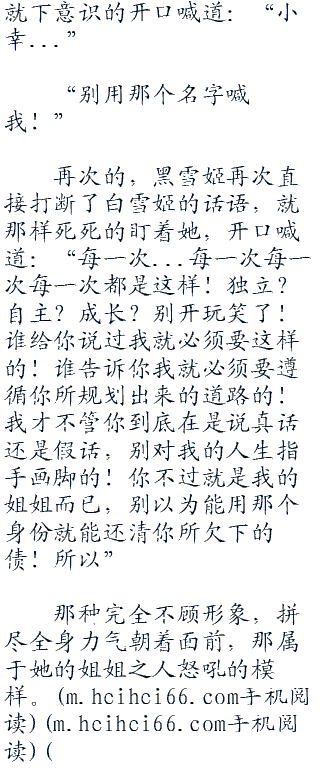 就下意识的开口喊道：“小
幸...”
“别用那个名字喊
我！”
再次的，黑雪姬再次直
接打断了白雪姬的话语，就
那样死死的盯着她，开口喊
道：“每一次...每一次每一
次每一次都是这样！独立？
自主？成长？别开玩笑了！
谁给你说过我就必须要这样
的！谁告诉你我就必须要遵
循你所规划出来的道路的！
我才不管你到底在是说真话
还是假话，别对我的人生指
手画脚的！你不过就是我的
姐姐而已，别以为能用那个
身份就能还清你所欠下的
债！所以”
那种完全不顾形象，拼
尽全身力气朝着面前，那属
于她的姐姐之人怒吼的模
样。(m.hcihci66.com手机阅
读)(m.hcihci66.com手机阅
读)(